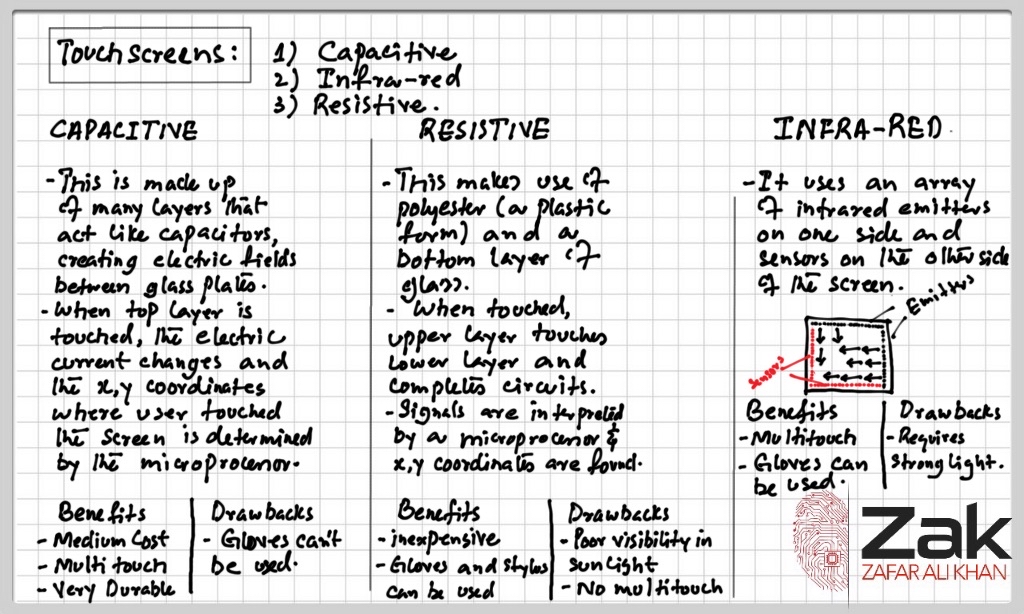 Touchscreens:
1) Capacitive
2) Infra-red
3) Resistive.
CAPACITIVE
- This is made up
of many layers that
act like capacitors,
creating electric fields
between glass plates.
- When top layer is
touched, the electric
current changes and
the x,y coordinates
where user touched
the screen is determined
by the microprocessor.
Benefits
- Medium Cost
- Multi touch
- Very Durable
Drawbacks
- Gloves can't
be used.
RESISTIVE
- This makes use of
polyester (a plastic
form) and a
bottom layer of
glass.
- When touched,
upper layer touches
lower layer and
completes circuits.
- Signals are interpreted
by a microprocessor &
x,y coordinates are found.
Benefits
- inexpensive
- Gloves and stylus
can be used
Drawbacks
- Poor visibility in
sunlight
- No multitouch
INFRA-RED
- It uses an array
of infrared emitters
on one side and
sensors on the other side
of the screen.
Emitters
Sensors
Benefits
- Multitouch
- Gloves can
be used.
Drawbacks
- Requires
strong light.
Zak
ZAFAR ALI KHAN